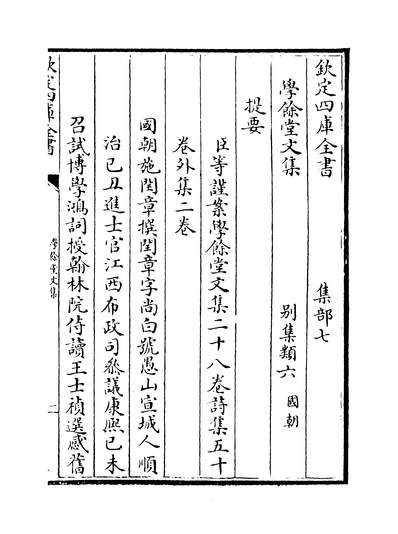 欽定四庫全書 集部七
學餘堂文集 別集類六 國朝
提要
臣等謹案學餘堂文集二十八卷詩集五十
卷外集二卷
國朝施閏章撰閏章字尚白號愚山宣城人順
治己丑進士官江西布政司叅議康熙己未
召試博學鴻詞授翰林院侍讀王士禎選感舊
欽定四庫全書
學餘堂文集